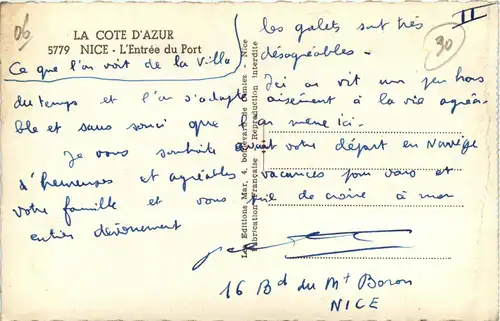 06
LA COTE D'AZUR
5779 NICE - L'Entrée du Port
Ce que l'on voit de la Villa
II
30
les galets sont très
désagréables.
Ici on vit un peu hors
du temps et l'on s'adapte aisément à la vie agréa-
ble et sans souci que l'on mène ici.
Je vous souhaite avant votre départ en Norvège
d'heureuses et agréables vacances pour vous et
votre famille et vous prie de croire à mon
entier dévouement
16 Bd du Mt Boron
NICE
Les Editions Mar, 4, boulevard de Cimiez - Nice
Fabrication Française - Reproduction interdite